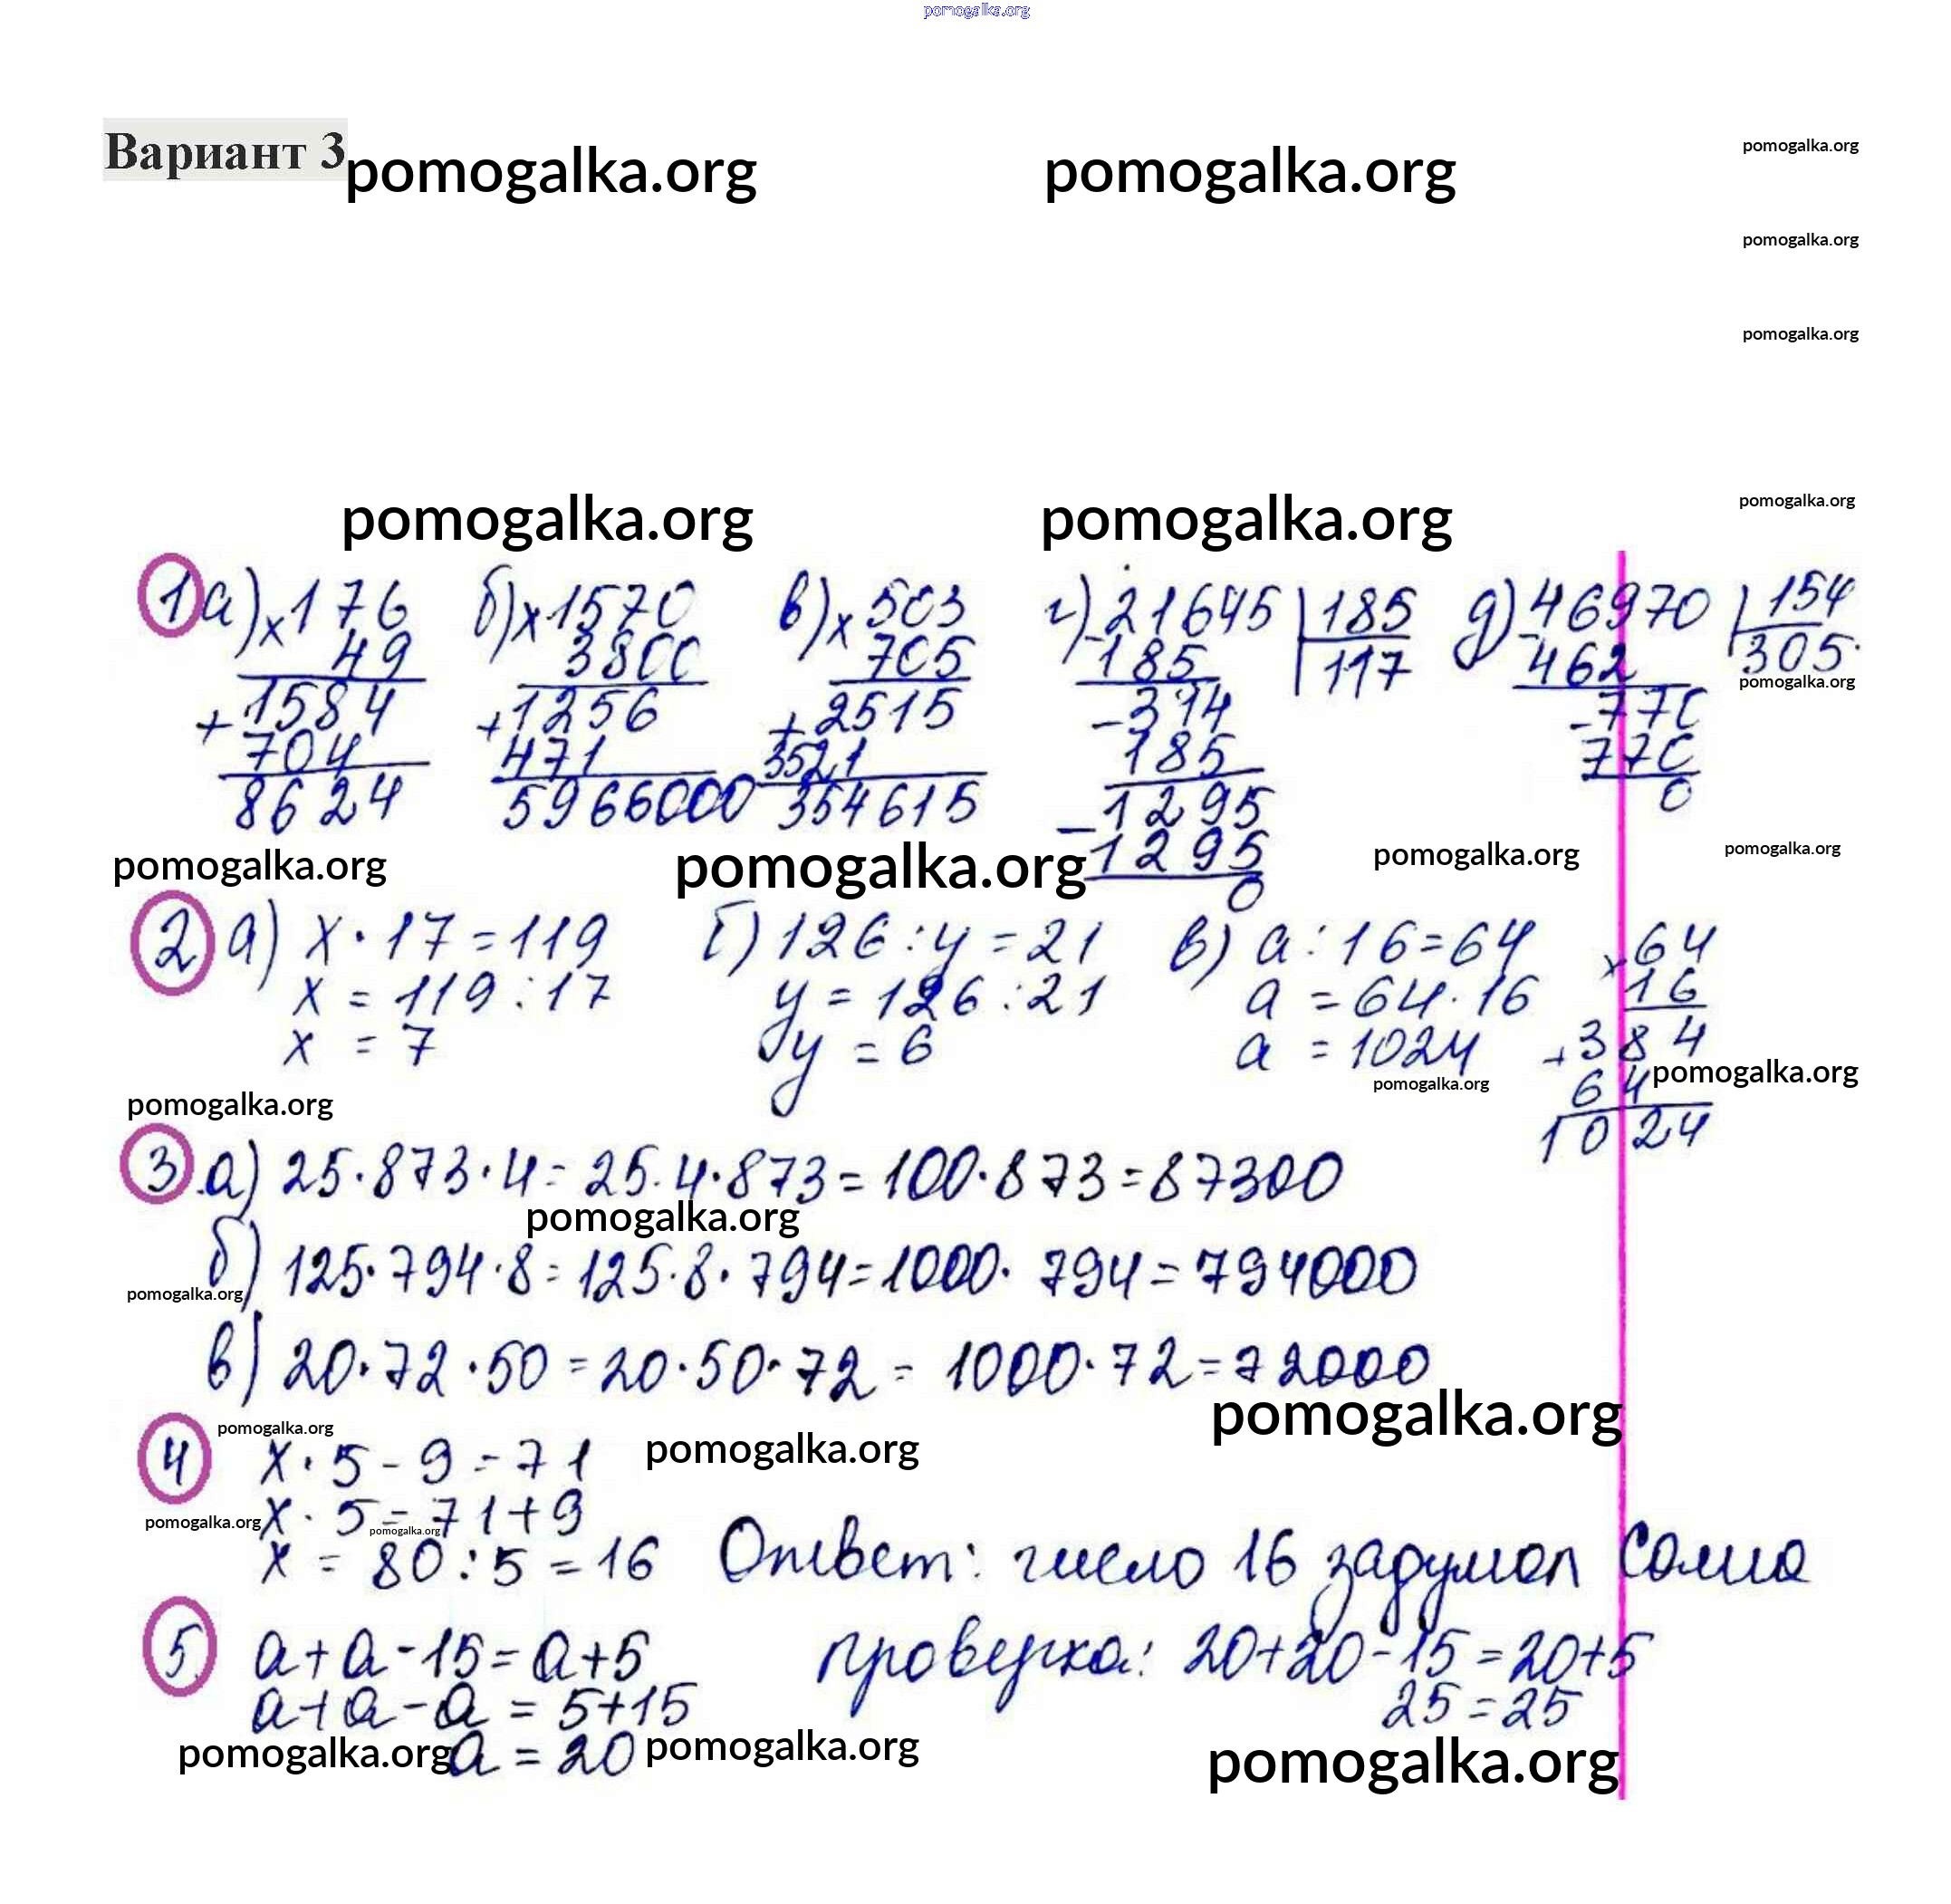 pomogalka.org
Вариант 3
pomogalka.org pomogalka.org pomogalka.org
pomogalka.org
pomogalka.org
pomogalka.org pomogalka.org pomogalka.org
1 а) x 176 б) x 1570 в) x 503 г) 21645 | 185 д) 46970 | 154
49 3800 705 - 185 117 - 462 305
pomogalka.org
+ 1584 + 1256 + 2515 - 314 - 770
704 471 3521 185 770
8624 5966000 354615 - 1295 0
pomogalka.org pomogalka.org 1295 pomogalka.org pomogalka.org
0
2 а) x · 17 = 119 б) 126 : y = 21 в) a : 16 = 64 x 64
x = 119 : 17 y = 126 : 21 a = 64 · 16 16
x = 7 y = 6 a = 1024 + 384
pomogalka.org pomogalka.org 64 pomogalka.org
1024
3 .а) 25 · 873 · 4 = 25 · 4 · 873 = 100 · 873 = 87300
pomogalka.org
б) 125 · 794 · 8 = 125 · 8 · 794 = 1000 · 794 = 794000
pomogalka.org
в) 20 · 72 · 50 = 20 · 50 · 72 = 1000 · 72 = 72000
pomogalka.org pomogalka.org pomogalka.org
4 x · 5 - 9 = 71
x · 5 = 71 + 9
pomogalka.org pomogalka.org
x = 80 : 5 = 16 Ответ: число 16 задумал Соша
5. a + a - 15 = a + 5 проверка: 20 + 20 - 15 = 20 + 5
a + a - a = 5 + 15 25 = 25
pomogalka.org a = 20 pomogalka.org pomogalka.org